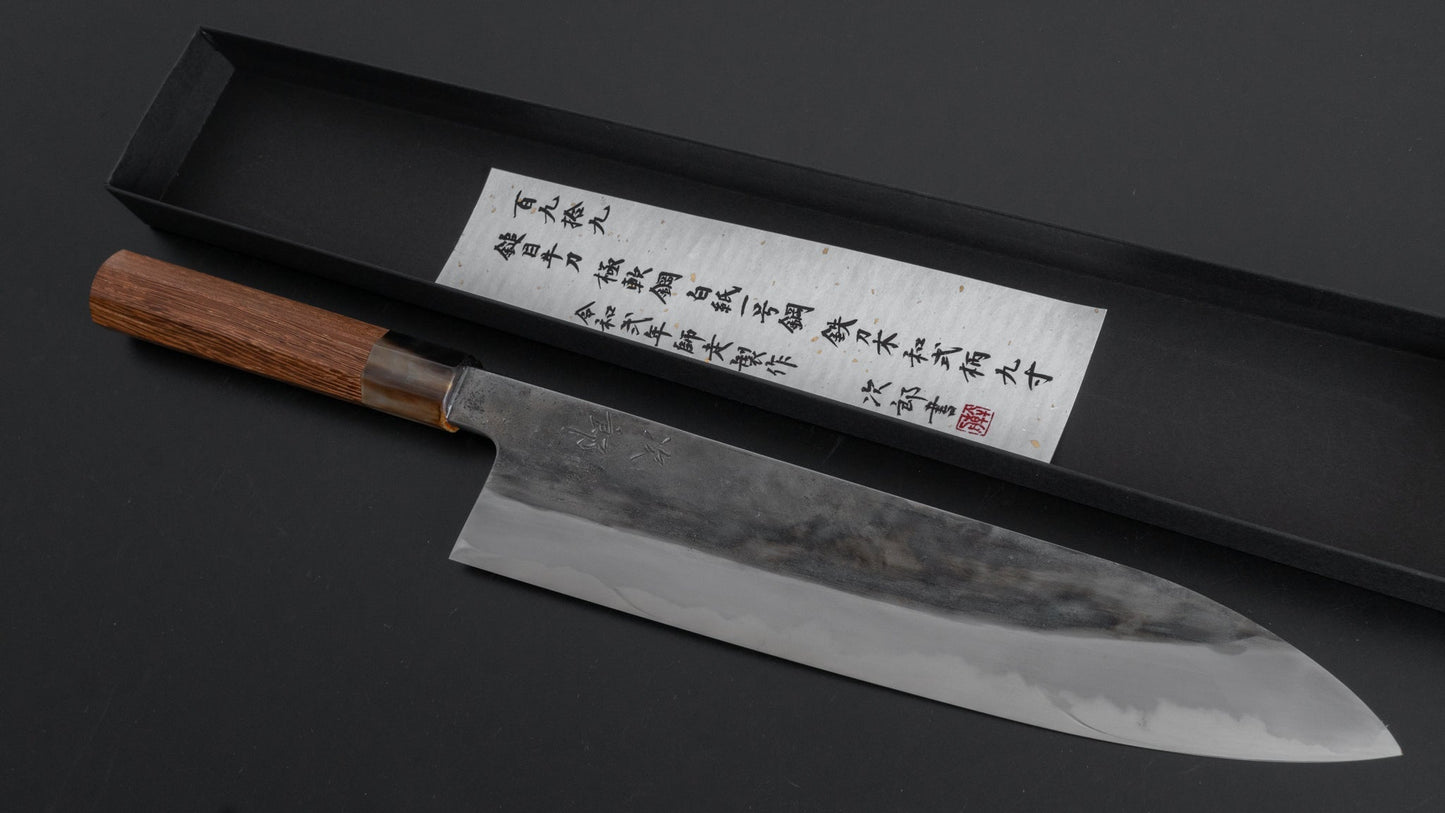 百九拾九
鎚目牛刀
極軟鋼 白紙一号鋼 鉄刀木 和式柄 九寸
令和弐年師走製作
次郎書